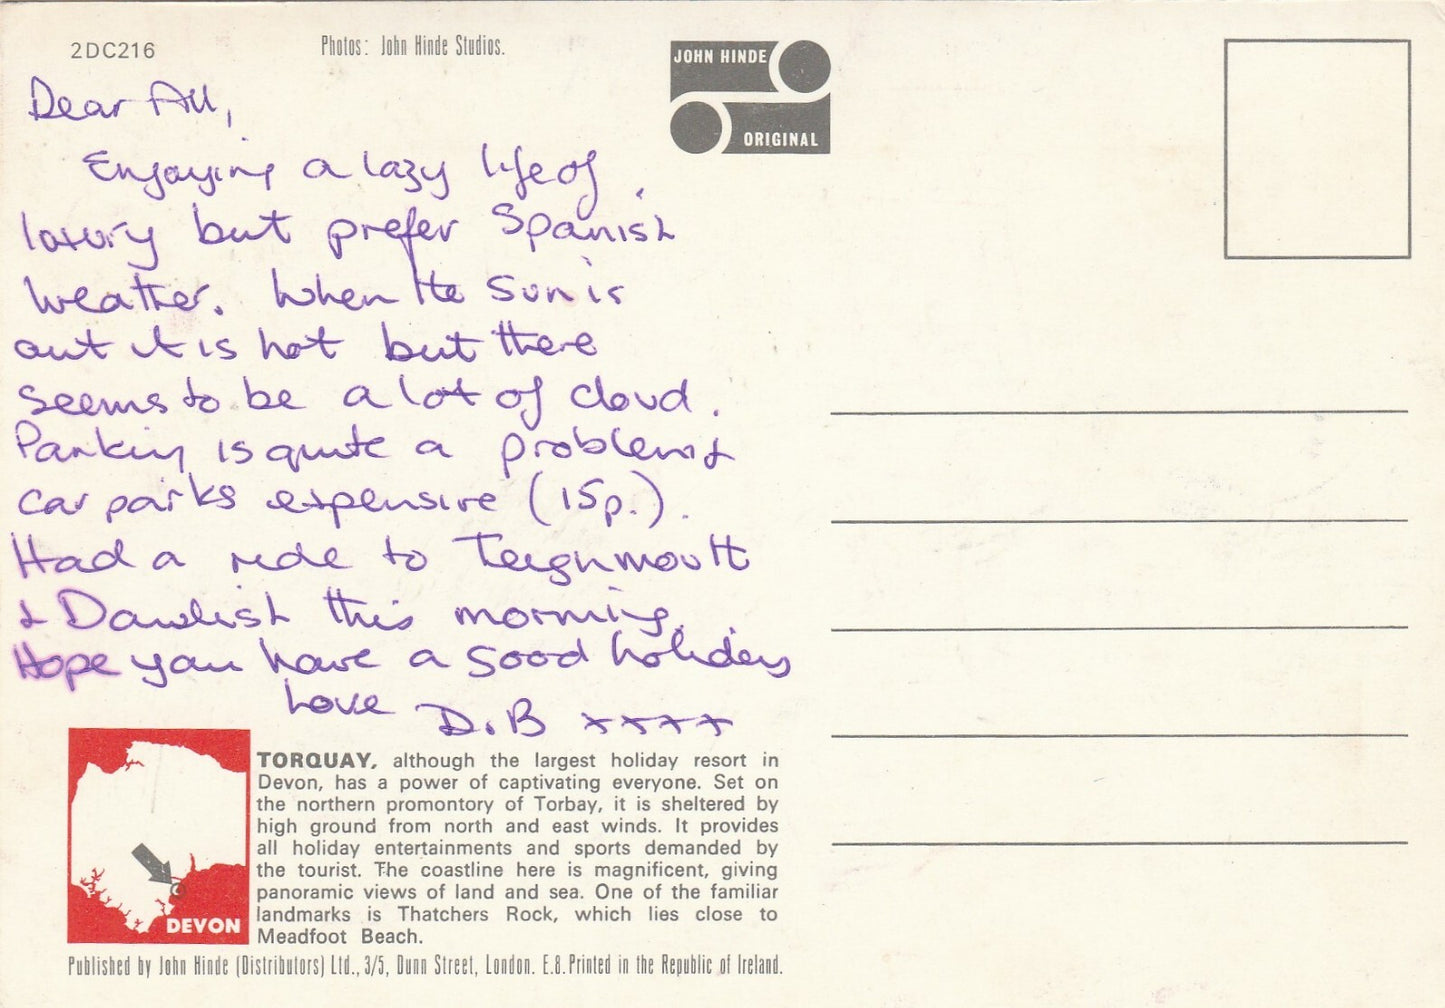 2DC216
Photos: John Hinde Studios.
JOHN HINDE
ORIGINAL
Dear All,
Enjoying a lazy life of
luxury but prefer Spanish
weather. When the sun is
out it is hot but there
seems to be a lot of cloud.
Parking is quite a problem &
car parks expensive (15p.).
Had a ride to Teignmouth
& Dawlish this morning.
Hope you have a good holiday
Love D.B xxxx
TORQUAY, although the largest holiday resort in
Devon, has a power of captivating everyone. Set on
the northern promontory of Torbay, it is sheltered by
high ground from north and east winds. It provides
all holiday entertainments and sports demanded by
the tourist. The coastline here is magnificent, giving
panoramic views of land and sea. One of the familiar
landmarks is Thatchers Rock, which lies close to
Meadfoot Beach.
DEVON
Published by John Hinde (Distributors) Ltd., 3/5, Dunn Street, London. E.8. Printed in the Republic of Ireland.